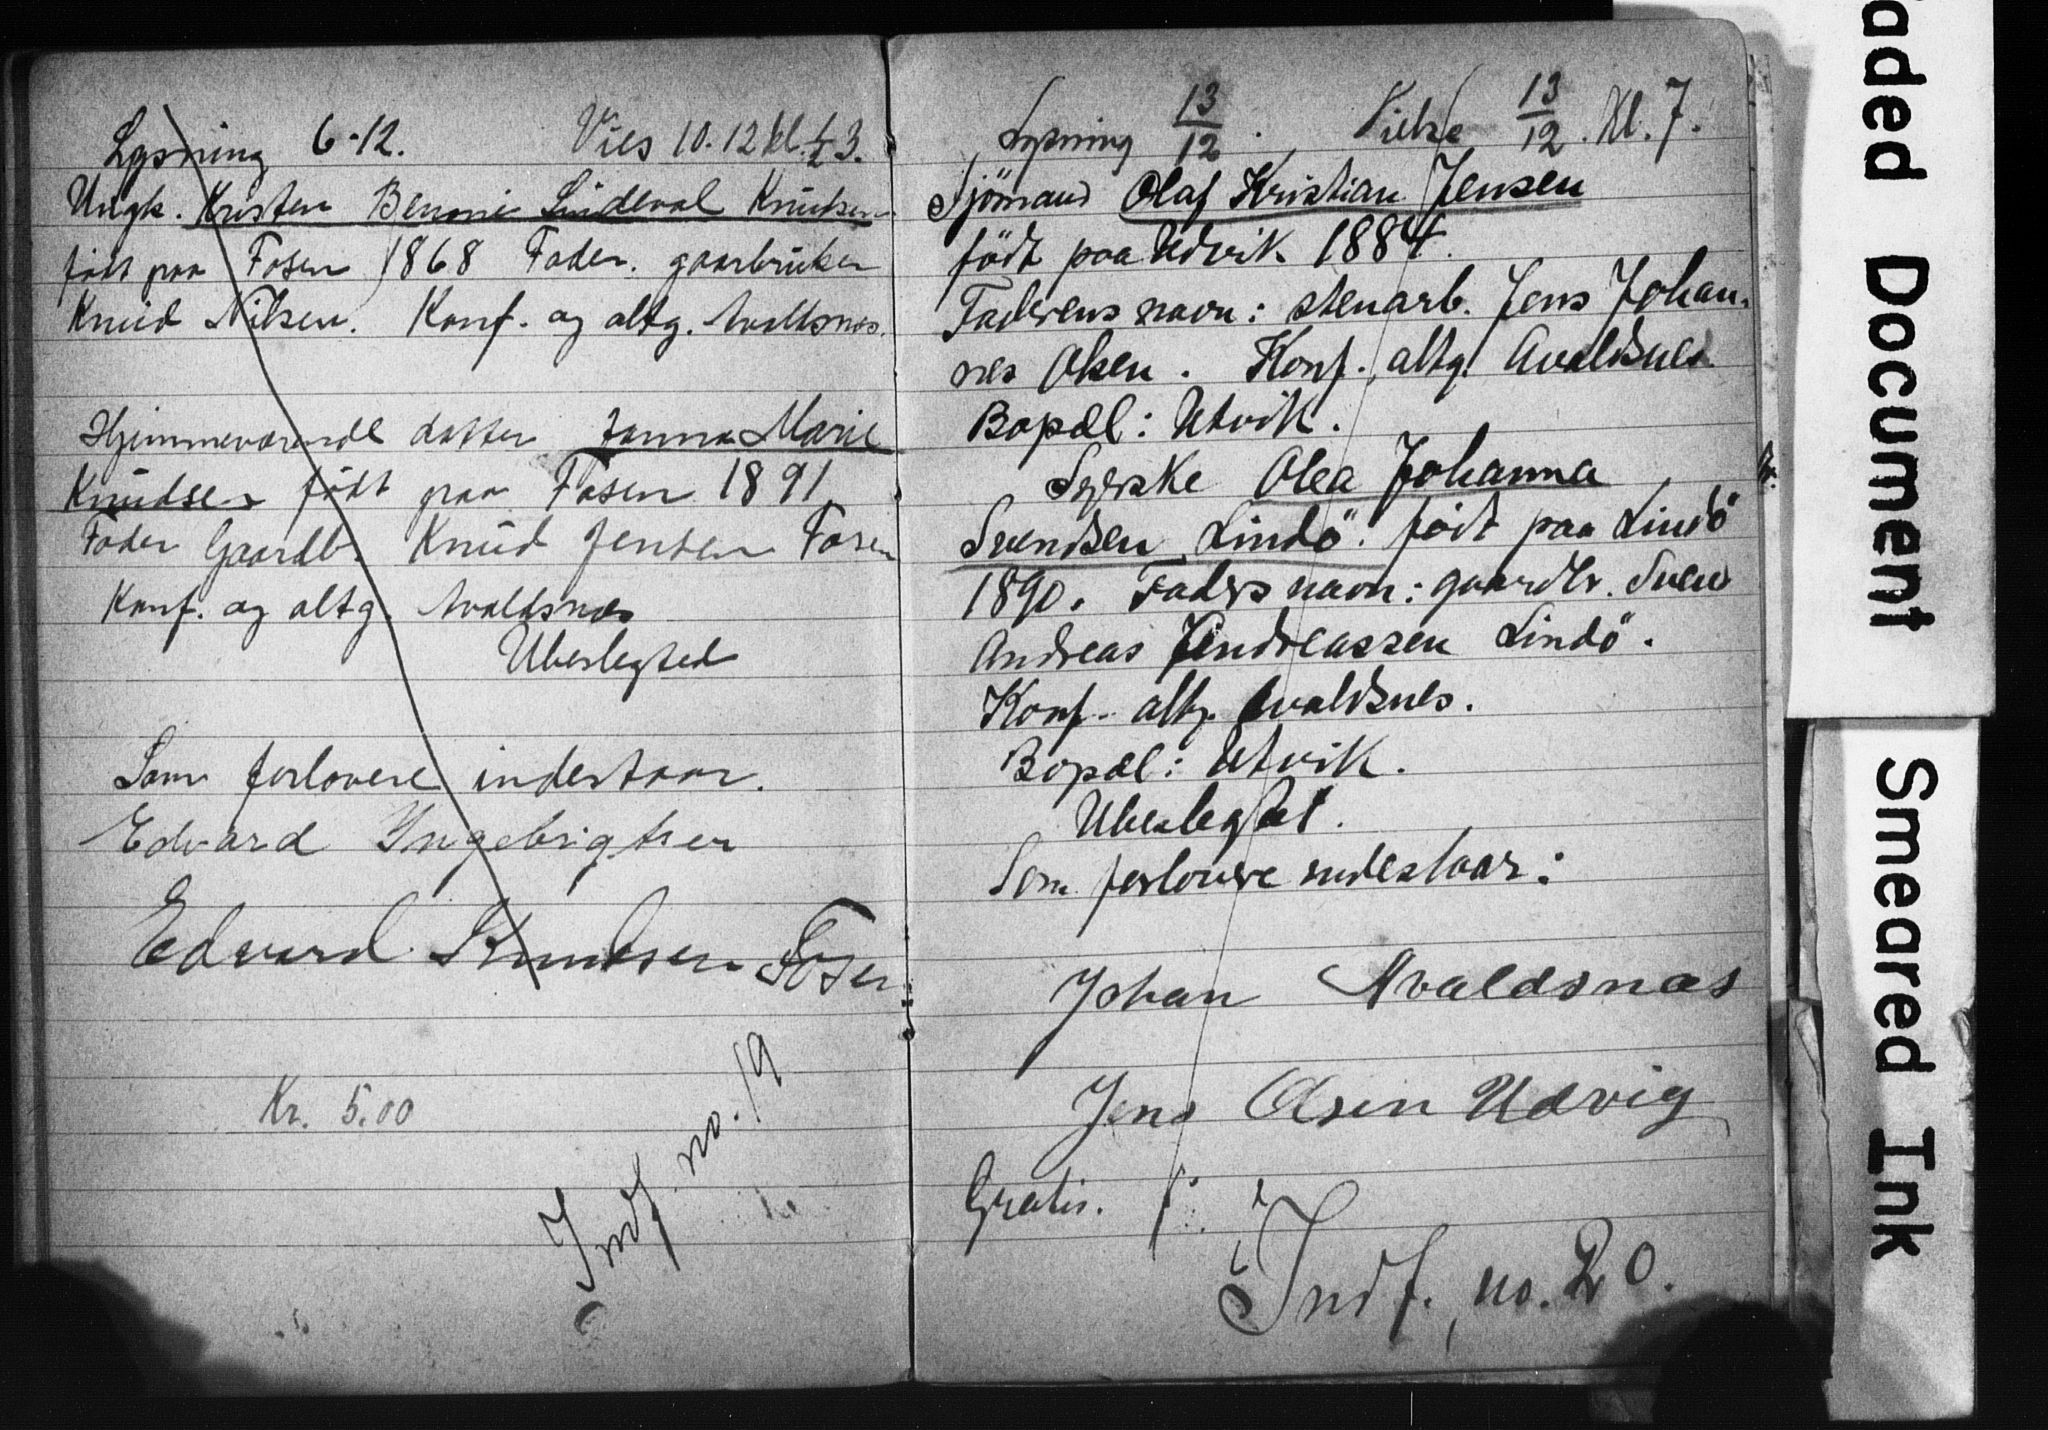 Lysning 6-12. Vies 10.12 kl. ½ 3.
Ungk. Kristen Benonie Lindeval Knutsen
født paa Fosen 1868 Fader. gaarbruker
Knud Nilsen. Konf. og altg. Avaldsnes.
Hjemmeværende datter Janna Marie
Knudsen født paa Fosen 1891
Fader Gaardb. Knud Jensen Fosen
Konf. og altg. Avaldsnes
Ubeslegted
Som forlovere indestaar.
Edvard Ingebrigtsen
Edvard Knudsen Fosen
Kr. 5.00
Indf. no. 19
Lysning 13/12. Vielse 13/12. Kl. 7.
Sjömand Olaf Kristian Jensen
födt paa Udvik 1884.
Faderens navn: stenarb. Jens Johan-
nes Olsen. Konf. altg. Avaldsnes.
Bopæl: Utvik.
Syerske Olea Johanna
Svendsen Lindö. födt paa Lindö
1890. Faders navn: gaardbr. Sven
Andreas Endreassen Lindö.
Konf. altg. Avaldsnes.
Bopæl: Utvik.
Ubeslegtet.
Som forlovere indestaar:
Johan Avaldsnæs
Jens Olsen Udvig
Gratis.
Indf. no. 20.
aded Document
Smeared Ink